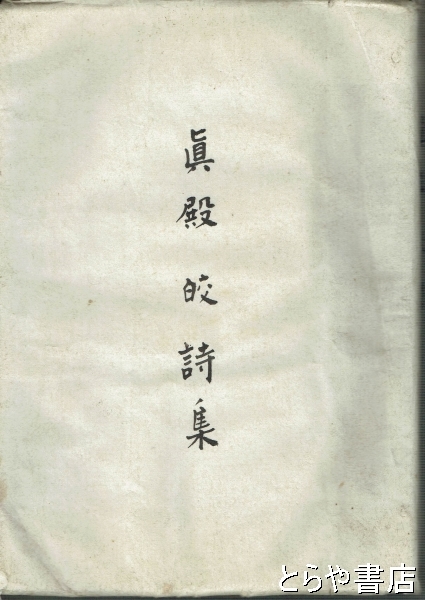 眞殿皎詩集
とらや書店